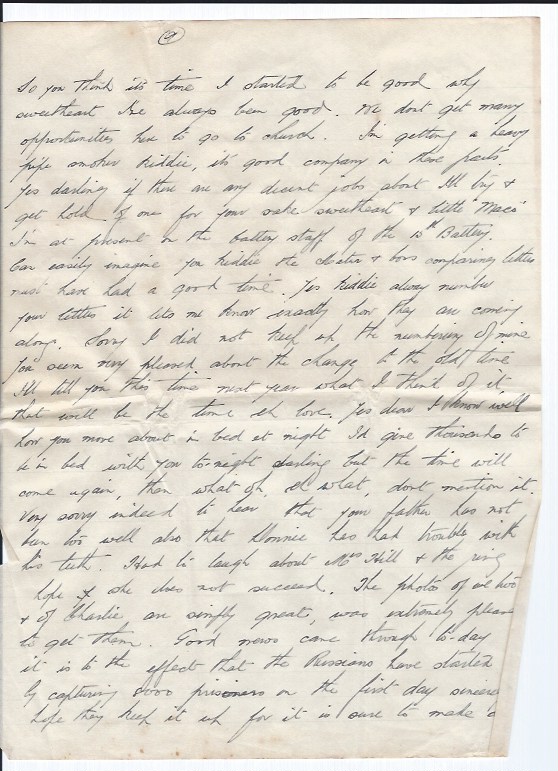 9
So you think its time I started to be good why
sweetheart I've always been good. We dont get many
opportunities here to go to church. I'm getting a heavy
pipe smoker Kiddie, its good company in these parts.
Yes darling if there are any decent jobs about I'll try &
get hold of one for your sake sweetheart & little "Mac"
I'm at present on the battery staff of the 13th Battery.
Can easily imagine you Kiddie the & boys comparing letters
must have had a good time. Yes Kiddie always number
your letters it lets me know exactly how they are coming
along. Sorry I did not keep up the numbering of mine
You seem very pleased about the change to the old time
I'll tell you this time next year what I think of it
that will be the time eh love. Yes dear I know well
how you move about in bed at night I'd give thousands to
be in bed with you to-night darling but the time will
come again, then what oh, eh what, dont mention it.
Very sorry indeed to hear that your father has not
been too well also that Donnie has had trouble with
his teeth. Had to laugh about Mrs Hill & the ring
hope she does not succeed. The photos of we two
& of Charlie are simply great, was extremely please
to get them. Good news came through to-day
it is to the effect that the Russians have started
by capturing 8000 prisoners on the first day sincere
hope they keep it up for it is sure to make a